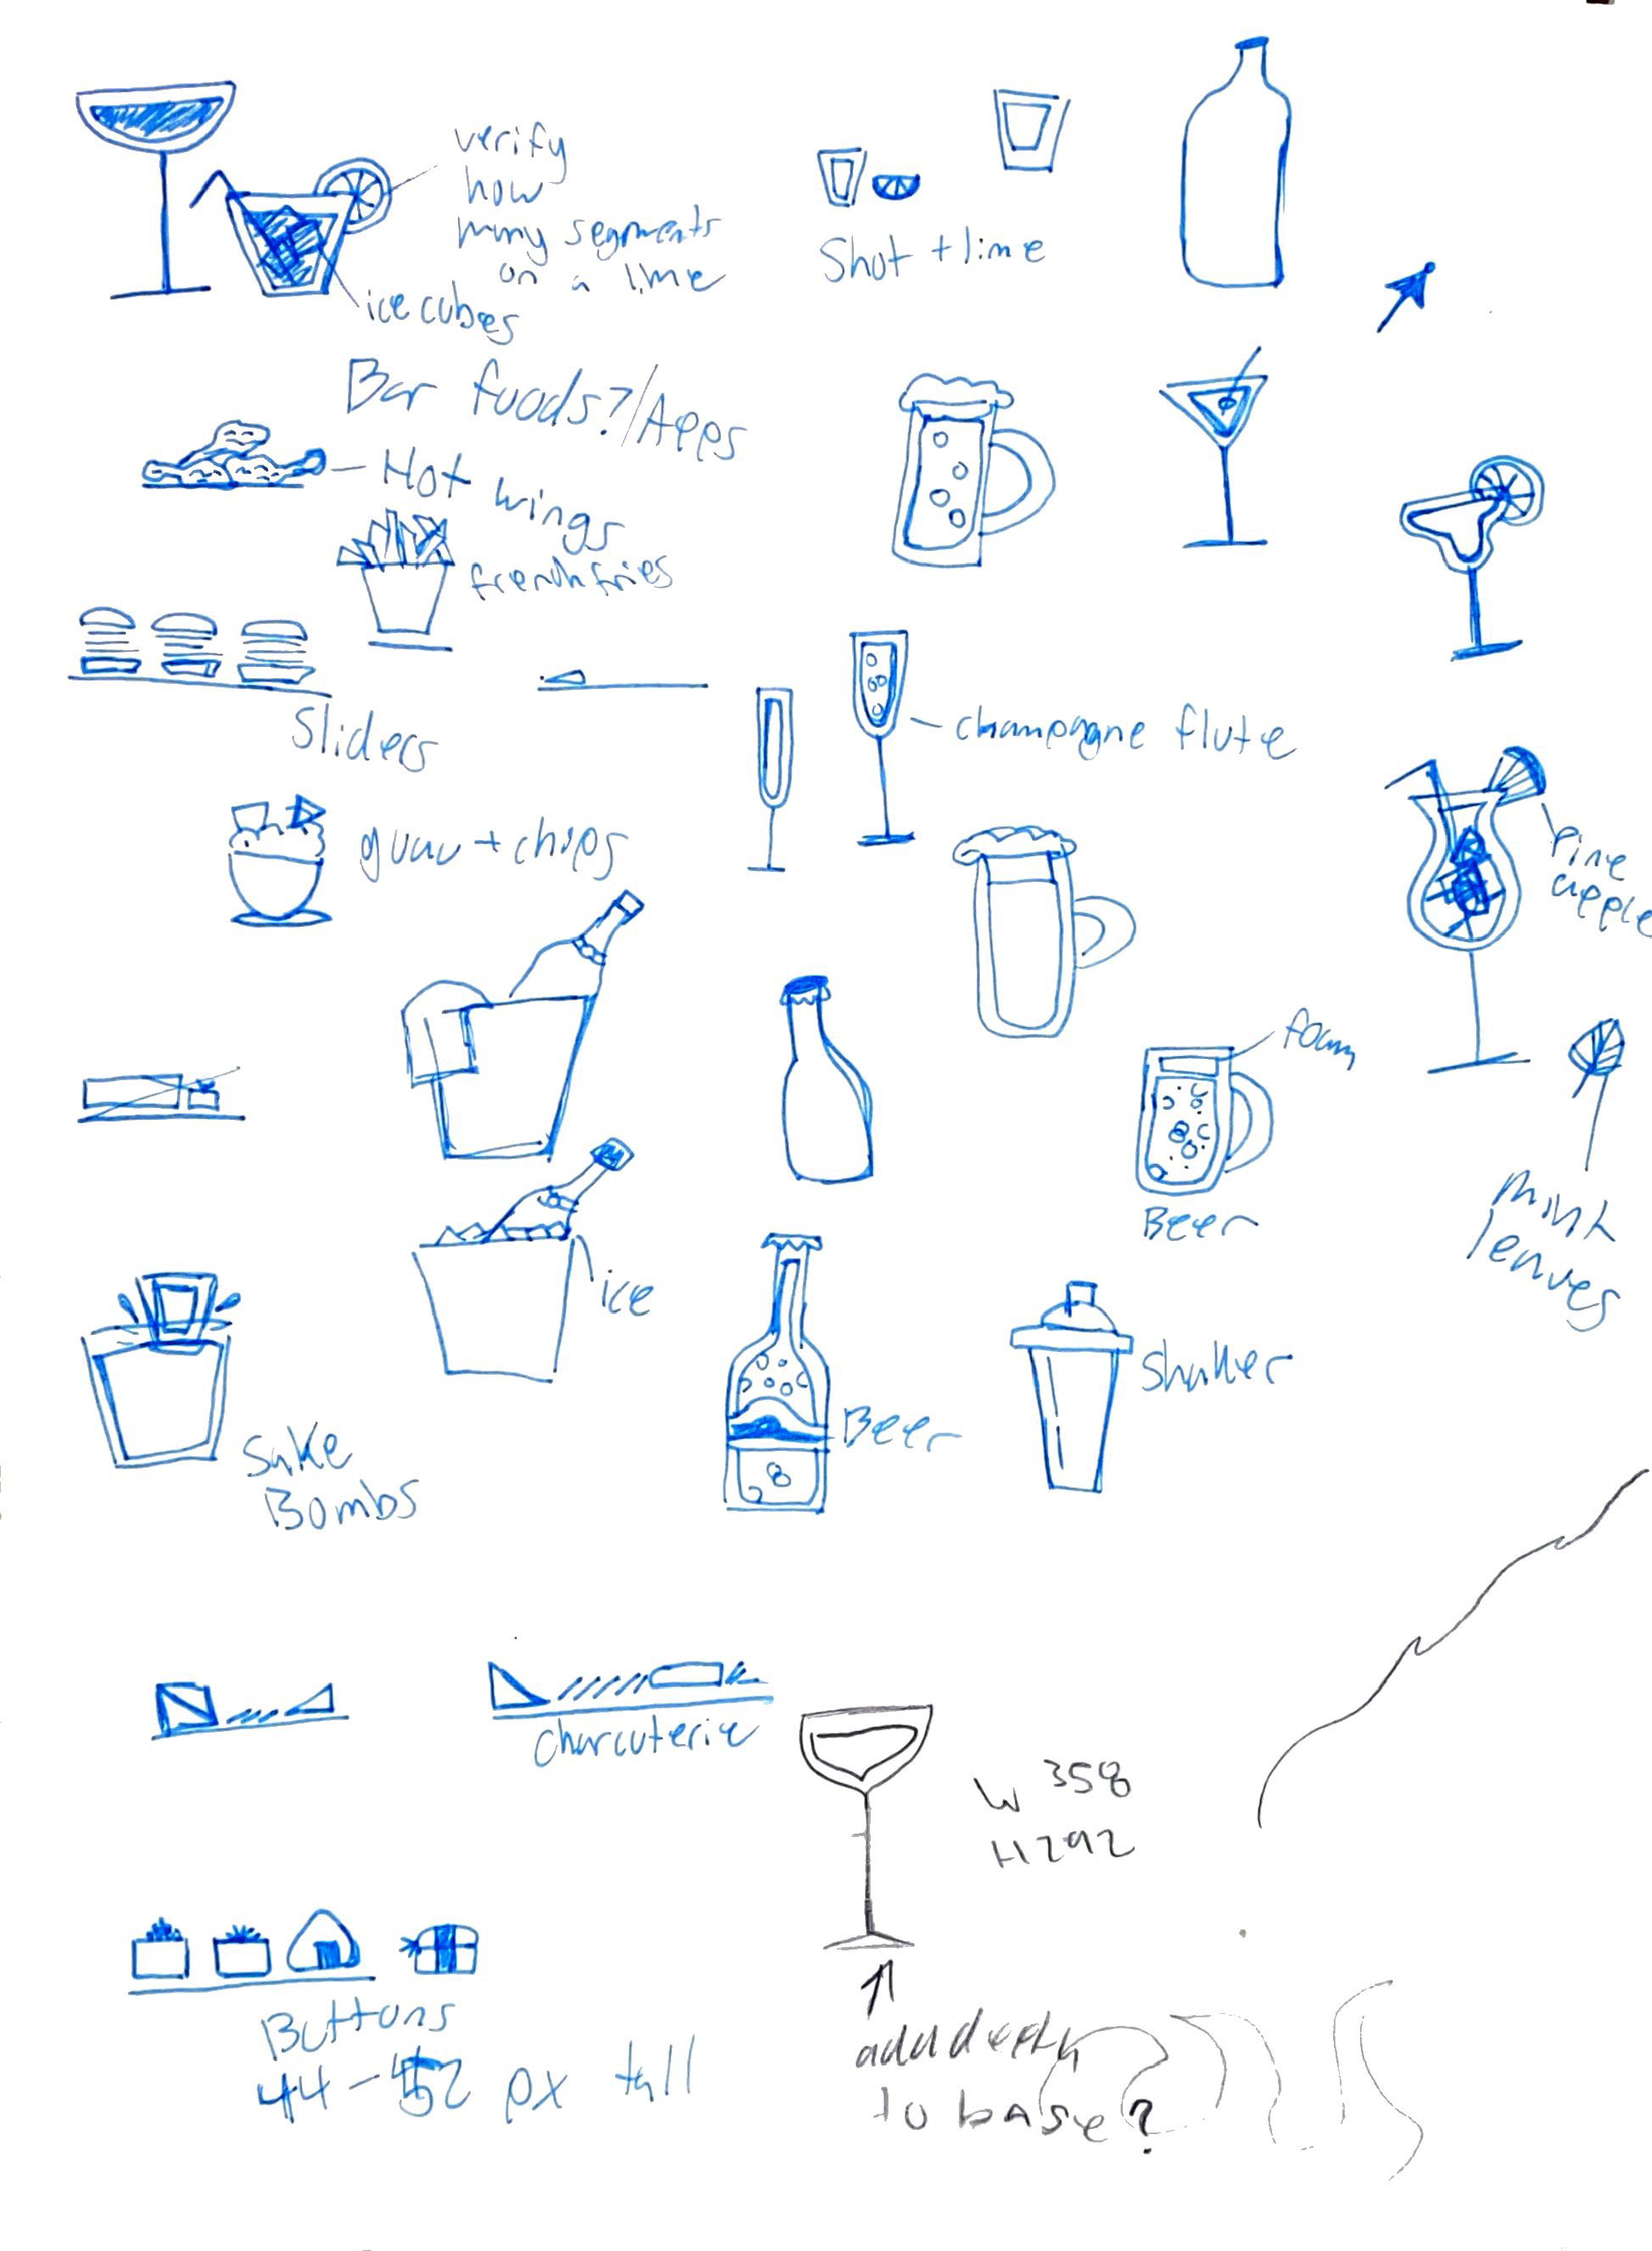 verify
how
many segments
on a lime
ice cubes
Shot + lime
Bar foods?/Apps
Hot wings
french fries
Sliders
champagne flute
guac + chips
Pine
apple
foam
Beer
mint
leaves
ice
Shaker
Beer
Sake
Bombs
charcuterie
W 358
H 292
Buttons
44-52 px tall
add depth
to base?